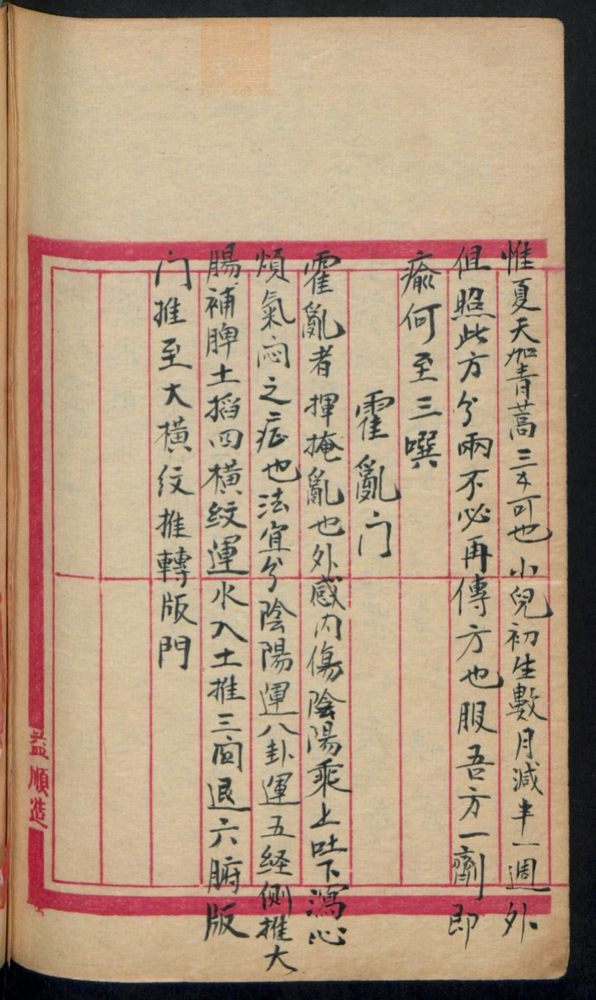 惟夏天加青蒿三千可也小兒初生數月減半一週外
但照此方分兩不必再傳方也服吾方一劑即
瘉何至三噀
霍亂门
霍亂者揮掩亂也外感内傷陰陽乘上吐下瀉心
煩氣闷之症也法宜分陰陽運八卦運五経側推大
腸補脾土搯四横紋運水入土推三関退六腑版
门推至大横纹推轉版門
益順造